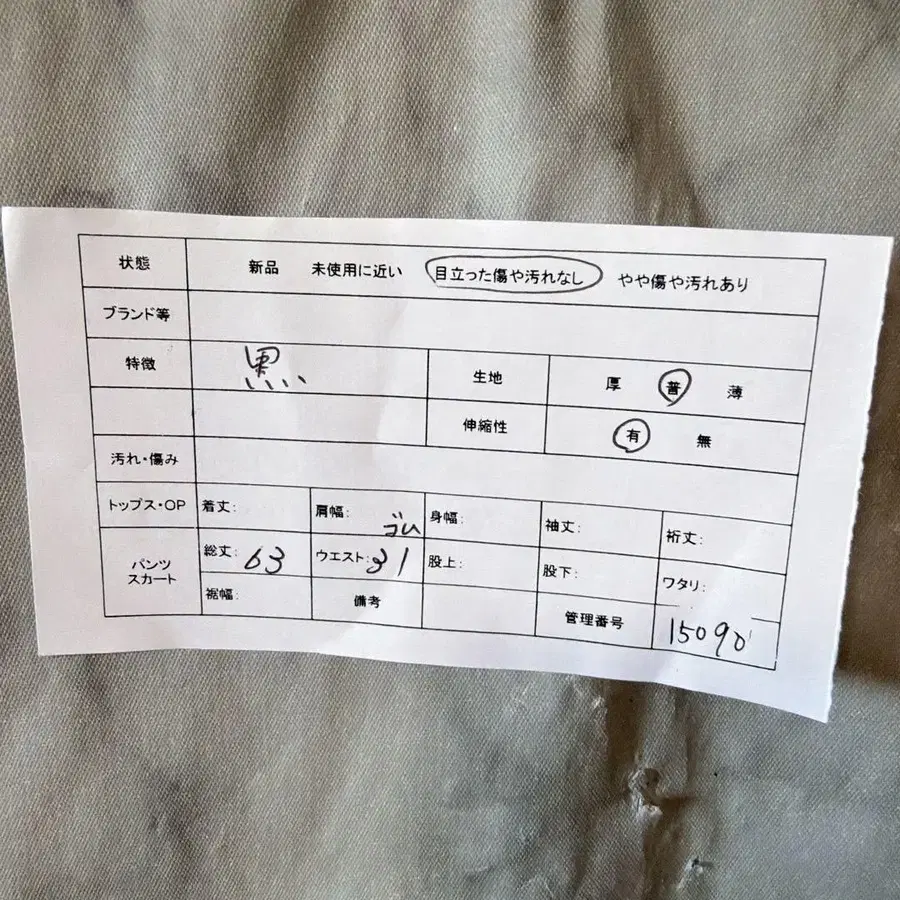 状態 新品 未使用に近い 目立った傷や汚れなし やや傷や汚れあり
ブランド等
特徴 黒 生地 厚 普 薄
伸縮性 有 無
汚れ・傷み
トップス・OP 着丈: 肩幅: 身幅: 袖丈: 裄丈:
パンツ スカート 総丈: 63 ウエスト: ゴム 31 股上: 股下: ワタリ:
裾幅: 備考 管理番号 15090